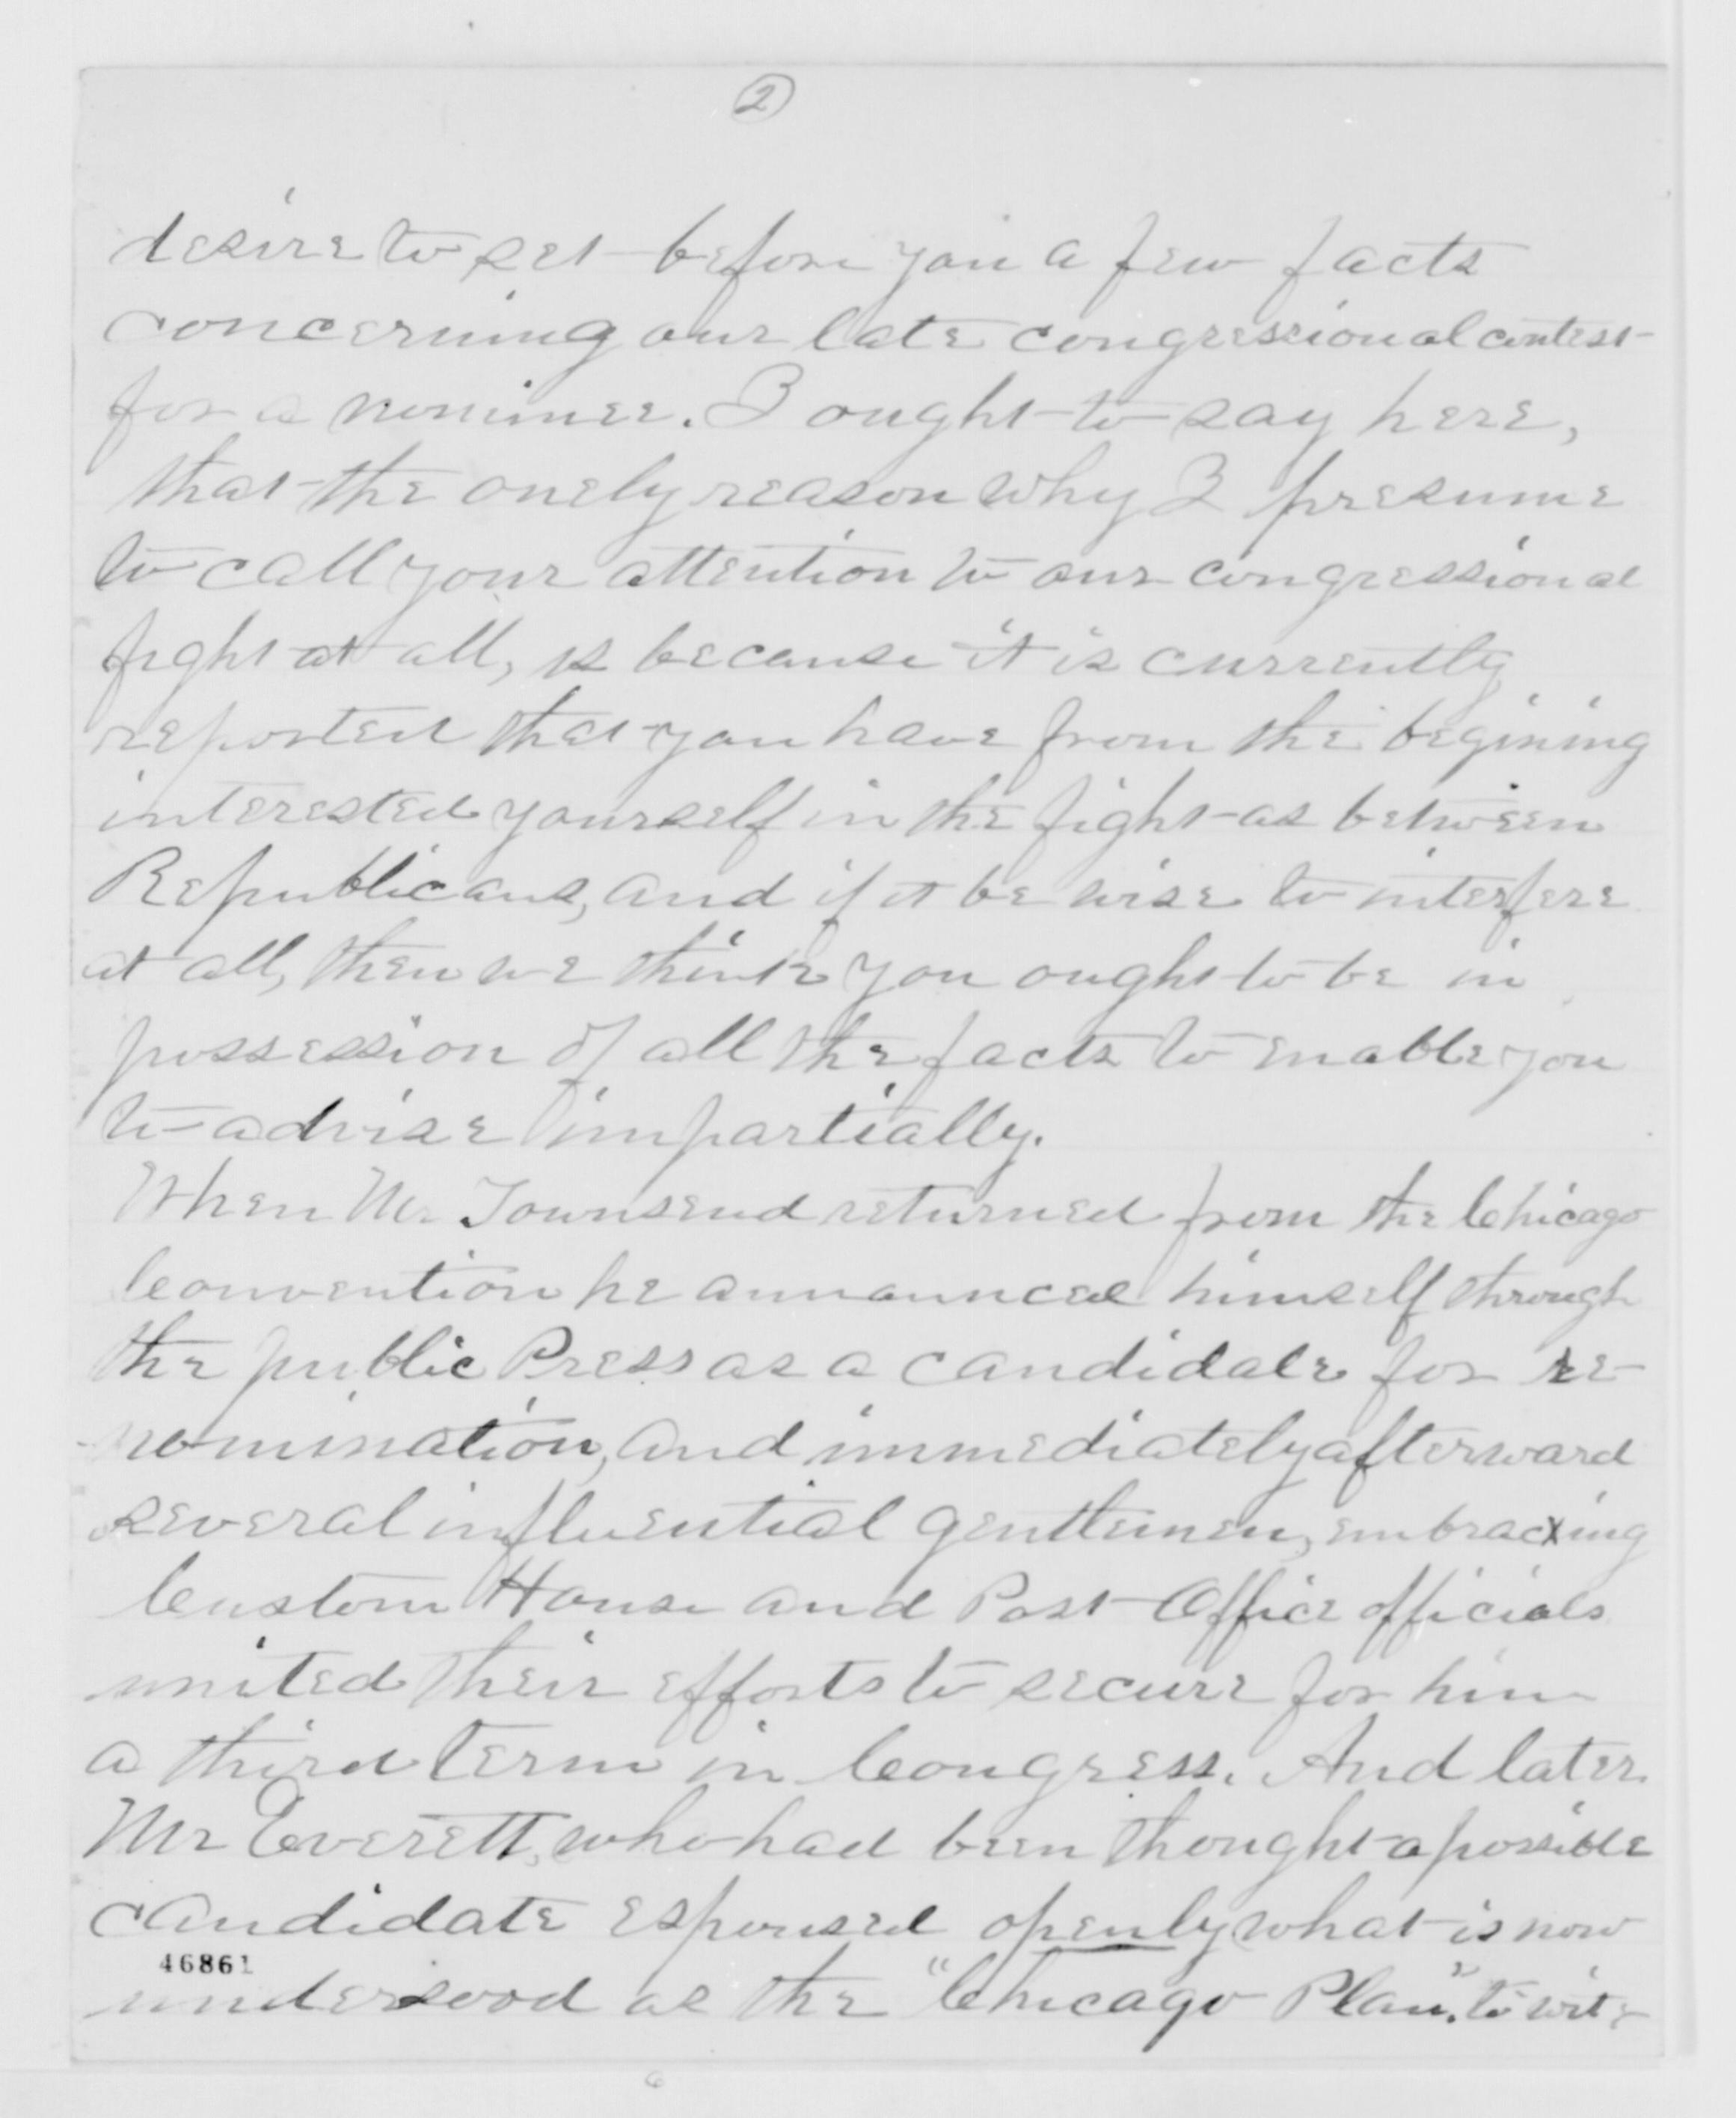 2
desire to set before you a few facts
concerning our late congressional contest
for a nominee. I ought to say here,
that the onely reason why I presume
to call your attention to our congressional
fight at all, is because it is currently
reported that you have from the begining
interested yourself in the fight as between
Republicans, and if it be wise to interfere
at all, then we think you ought to be in
possession of all the facts to enable you
to advise impartially.
When Mr Townsend returned from the Chicago
Convention he announced himself through
the public Press as a candidate for re-
nomination, and immediately afterward
several influential gentlemen, embracing
Custom House and Post Office officials
united their efforts to secure for him
a third term in Congress. And later
Mr Everett, who had been thought a possible
candidate espoused openly what is now
46861
undersood as the "Chicago Plan," to wit: